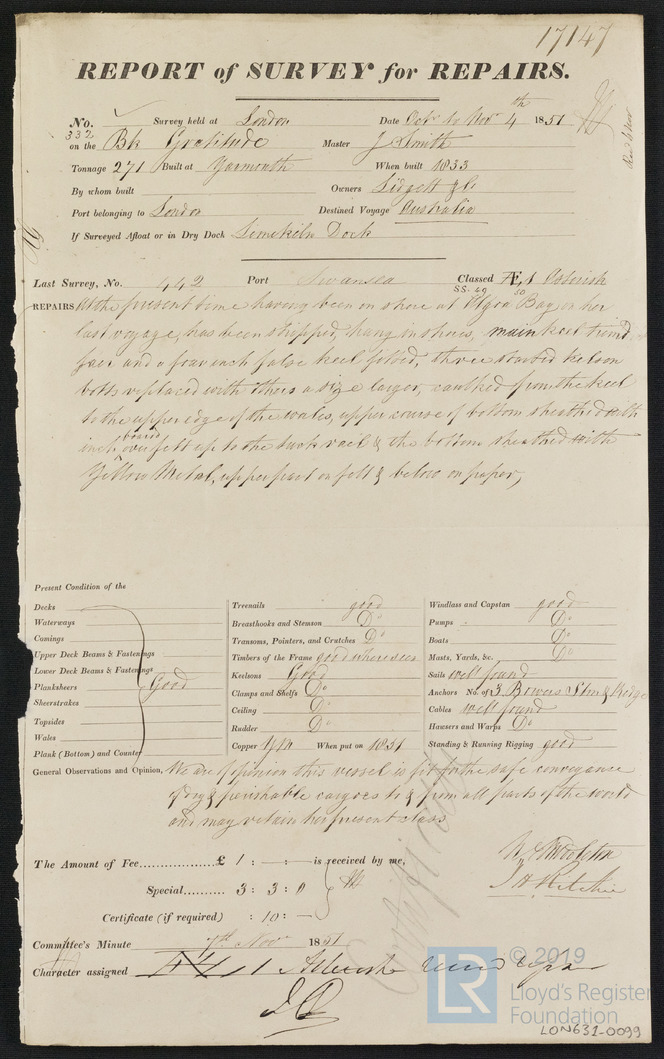 17147
REPORT of SURVEY for REPAIRS.
No. 332 Survey held at London Date Octr to Novr 4th 1851
on the Bk Gratitude Master J Smith
Tonnage 271 Built at Yarmouth When built 1833
By whom built Owners Lidgett & Co
Port belonging to London Destined Voyage Australia
If Surveyed Afloat or in Dry Dock Limekiln Dock
Last Survey, No. 442 Port Swansea Classed Æ 1 Asterisk
SS. 49 50
REPAIRS At the present time having been on shore at Algoa Bay on her
last voyage, has been stripped, hung in shores, main keel trimd
fair and a four inch false keel fitted, three started kelson
bolts replaced with others a size larger, caulked from the keel
to the upper edge of the wales, upper course of bottom sheathd with
inch board over felt up to the tuck rael & the bottom sheathed with
Yellow Metal, upper part on felt & below on paper,
Present Condition of the
Decks
Waterways
Comings
Upper Deck Beams & Fastenings
Lower Deck Beams & Fastenings
Planksheers Good
Sheerstrakes
Topsides
Wales
Plank (Bottom) and Counter
Treenails good
Breasthooks and Stemson Do
Transoms, Pointers, and Crutches Do
Timbers of the Frame good where seen
Keelsons Good
Clamps and Shelfs Do
Ceiling Do
Rudder Do
Copper YM When put on 1851
Windlass and Capstan good
Pumps Do
Boats Do
Masts, Yards, &c. Do
Sails well found
Anchors No. of 3 Bowers Strm & Kedge
Cables well found
Hawsers and Warps Do
Standing & Running Rigging good
General Observations and Opinion, We are of opinion this vessel is fit for the safe conveyance
of dry & perishable cargoes to & from all parts of the world
and may retain her present class
The Amount of Fee £ 1 : — : — is received by me,
Special 3 : 3 : 0
Certificate (if required) : 10 : —
J H Ritchie
Certificate
Committee's Minute 7th Novr 1851
Character assigned Æ 1 Asterisk
LR © 2019
Lloyd's Register
Foundation
LON631-0099